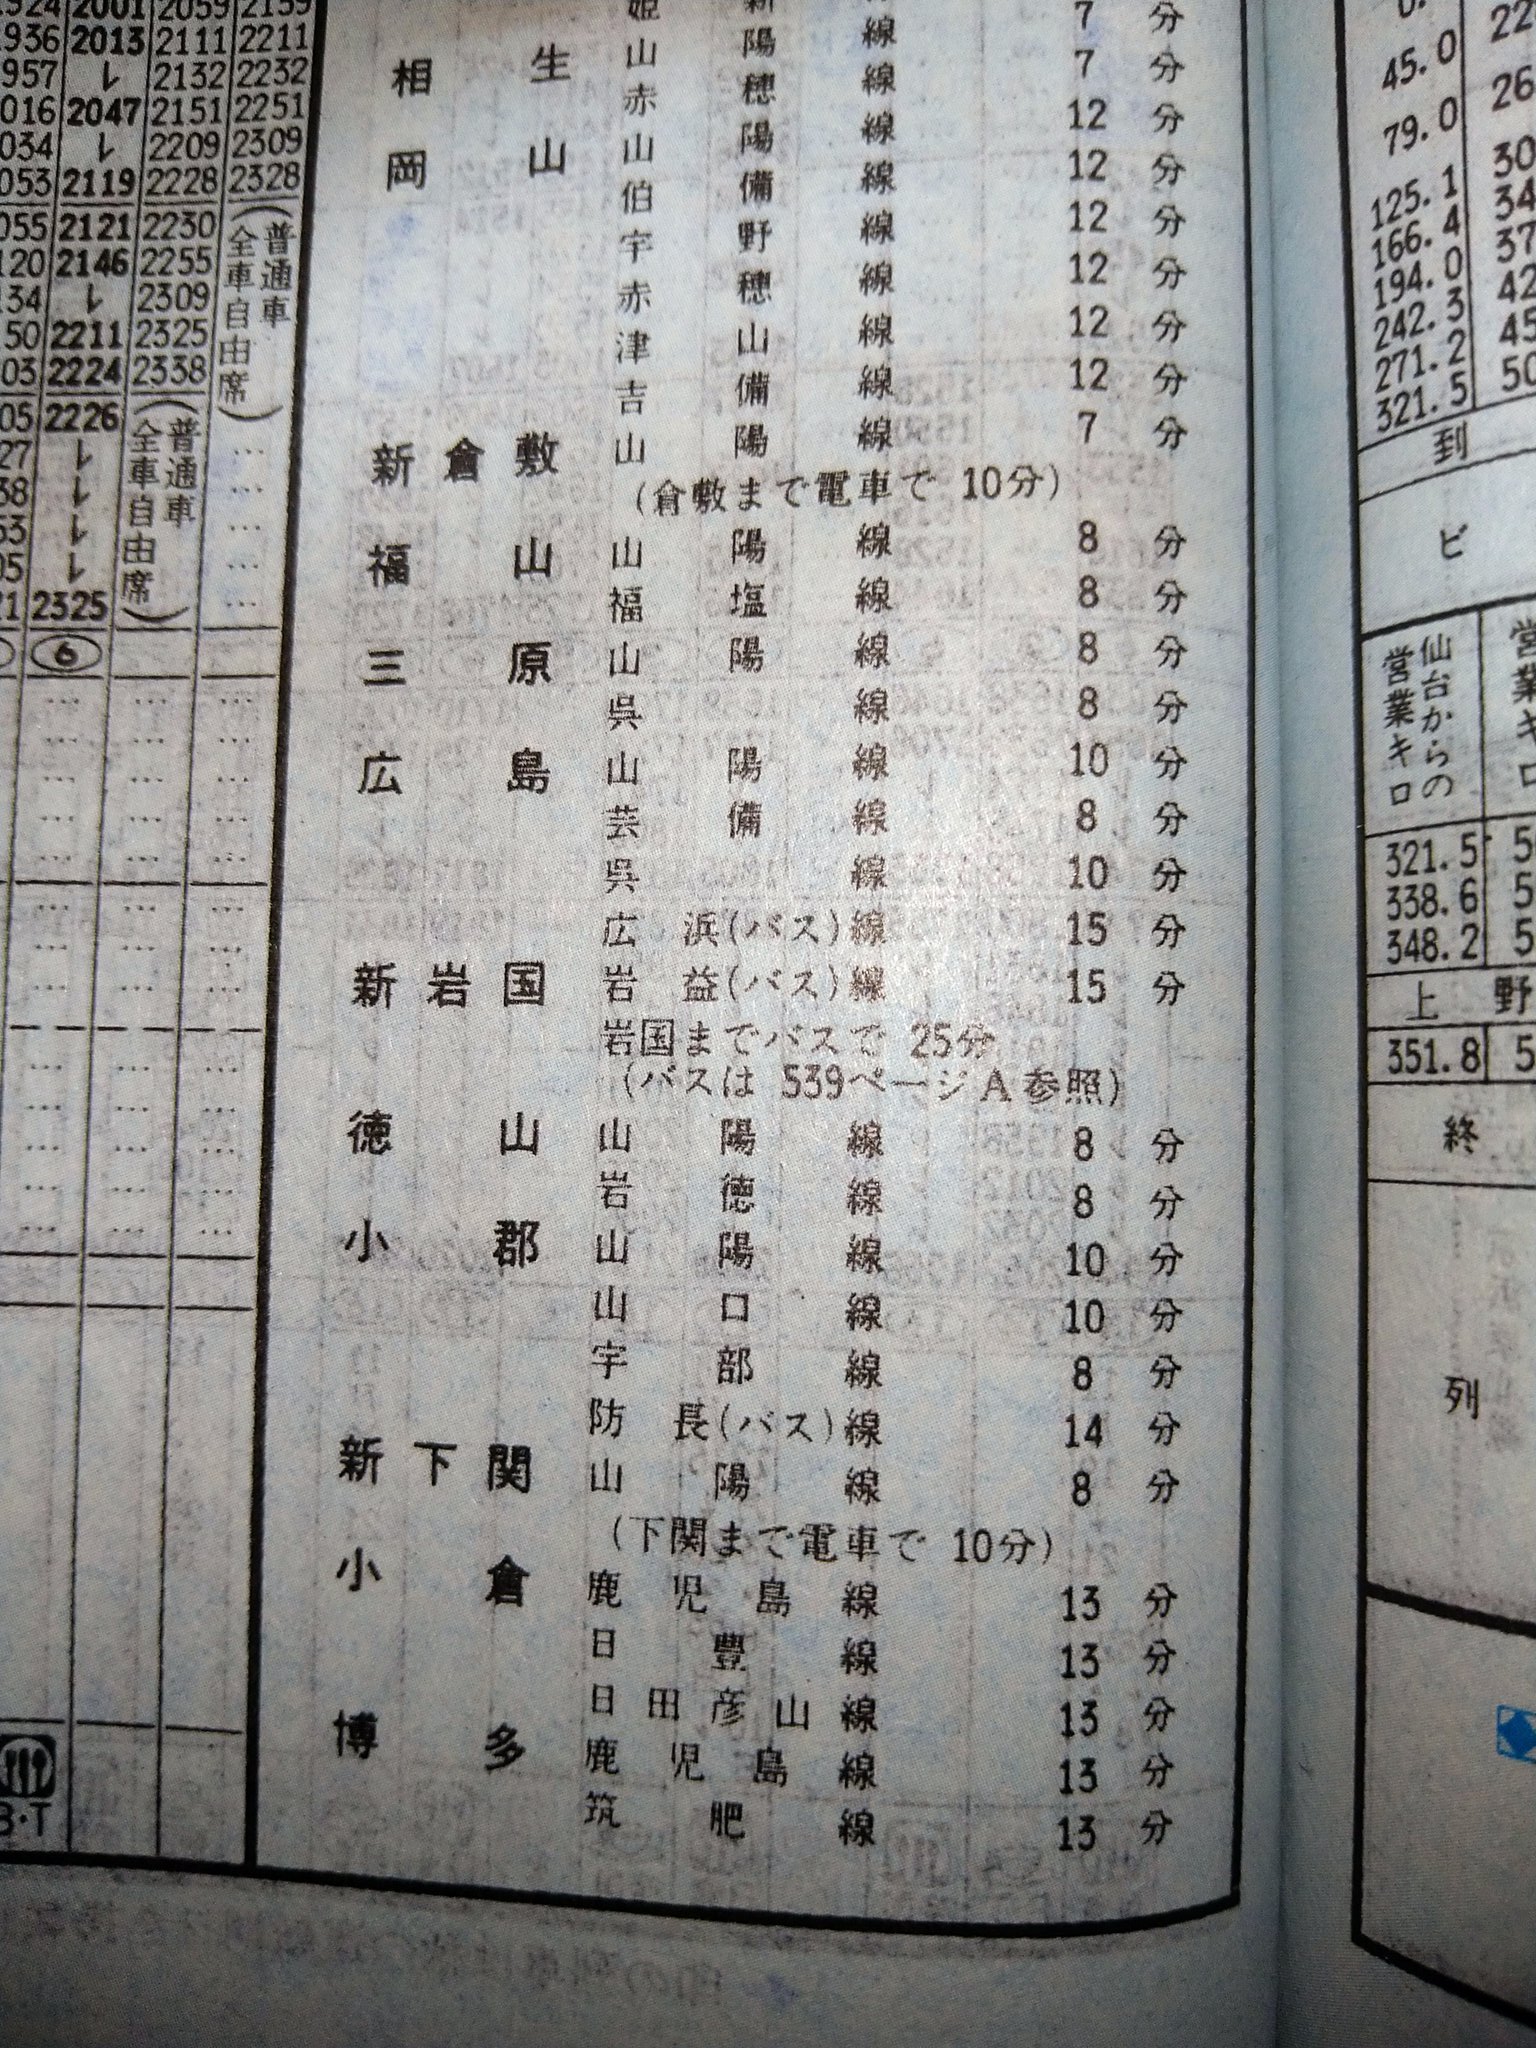 1924 2001 2059 2159
1936 2013 2111 2211
1957 ↓ 2132 2232
2016 2047 2151 2251
2034 ↓ 2209 2309
2053 2119 2228 2328
2055 2121 2230
2120 2146 2255
2134 ↓ 2309
50 2211 2325
03 2224 2338
05 2226
27 ↓
38 ↓
53 ↓
05 ↓
21 2325
(普通車
全車自由席)
(普通車
全車自由席)
6
B・T
姫 新 線 7 分
相生 山陽線 7 分
赤穂線 12 分
岡山 山陽線 12 分
伯備線 12 分
宇野線 12 分
赤穂線 12 分
津山線 12 分
吉備線 12 分
新倉敷 山陽線 7 分
(倉敷まで電車で 10分)
福山 山陽線 8 分
福塩線 8 分
三原 山陽線 8 分
呉線 8 分
広島 山陽線 10 分
芸備線 8 分
呉線 10 分
広浜(バス)線 15 分
新岩国 岩益(バス)線 15 分
岩国までバスで 25分
(バスは 539ページA参照)
徳山 山陽線 8 分
岩徳線 8 分
小郡 山陽線 10 分
山口線 10 分
宇部線 8 分
防長(バス)線 14 分
新下関 山陽線 8 分
(下関まで電車で 10分)
小倉 鹿児島線 13 分
日豊線 13 分
日田彦山線 13 分
博多 鹿児島線 13 分
筑肥線 13 分
45.0
79.0
125.1
166.4
194.0
242.3
271.2
321.5
到
ビ
仙台からの
営業キロ
営業キロ
321.5
338.6
348.2
上野
351.8
終
列